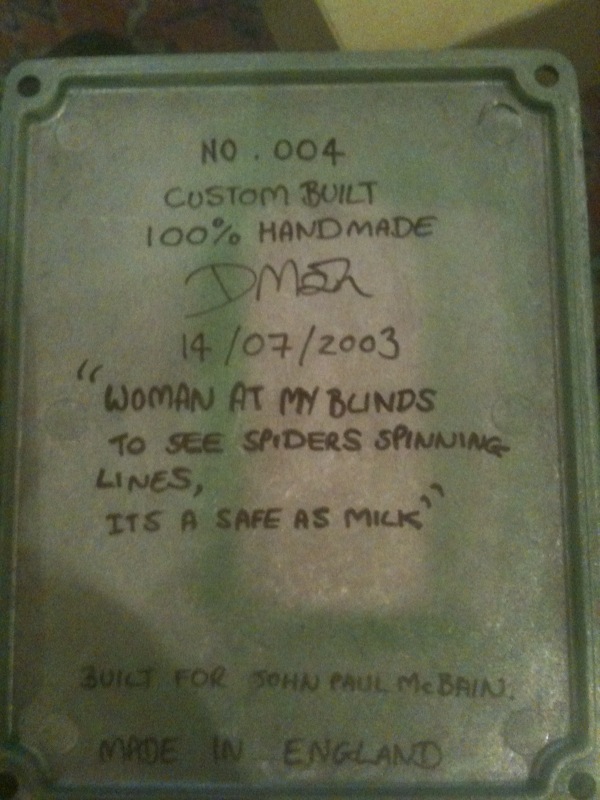 NO. 004
CUSTOM BUILT
100% HANDMADE
14/07/2003
"WOMAN AT MY BLINDS
TO SEE SPIDERS SPINNING
LINES,
ITS A SAFE AS MILK"
BUILT FOR JOHN PAUL McBAIN.
MADE IN ENGLAND